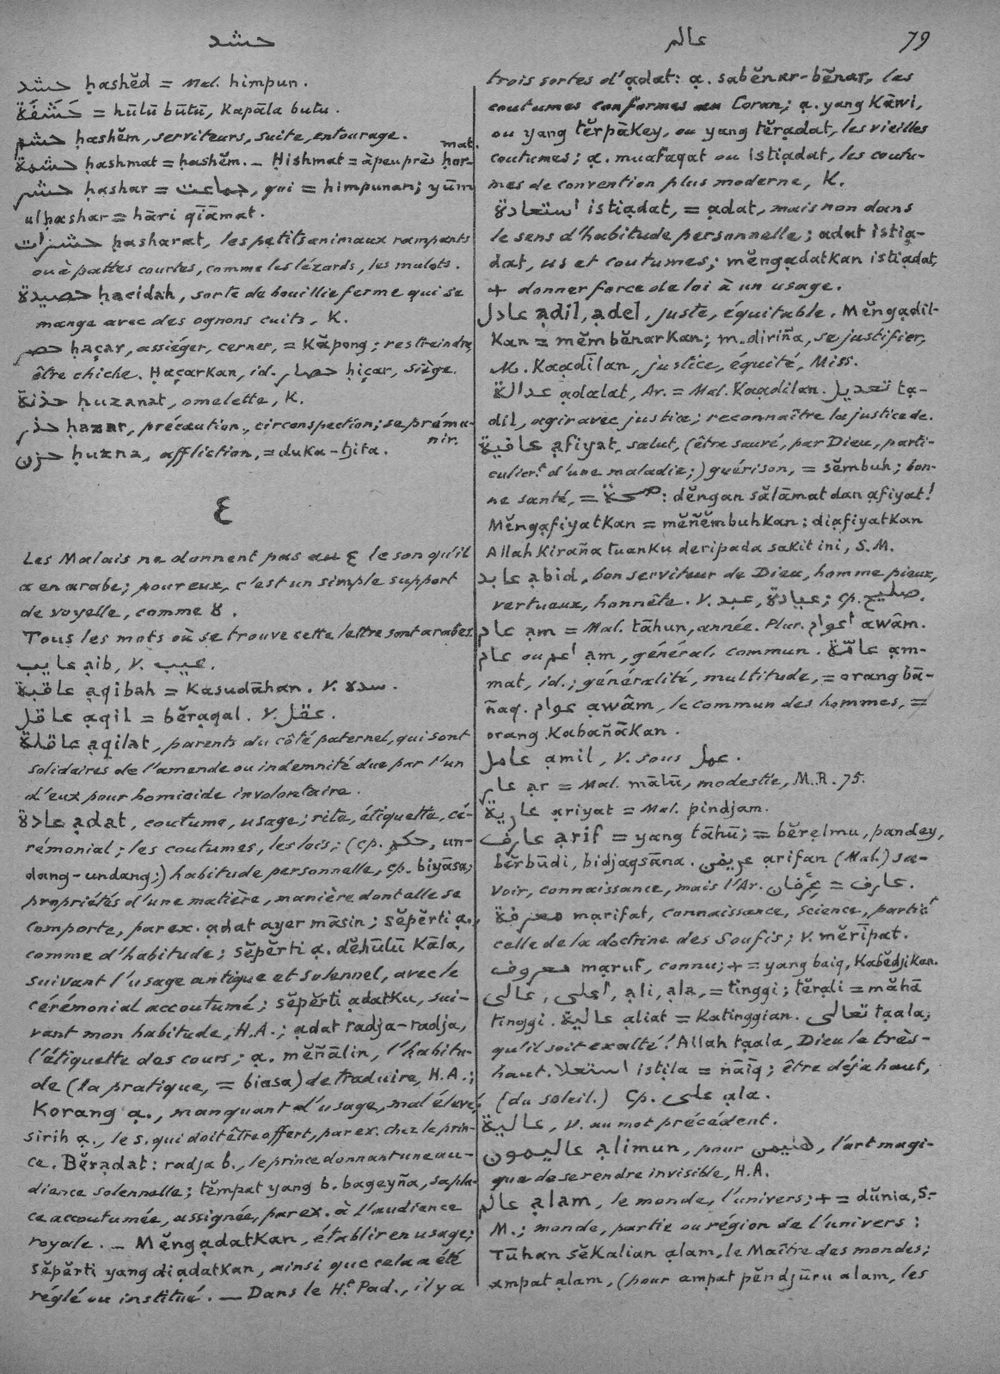 حشد
عالم
79
حشد ḥashĕd = Mal. himpun.
حَشَفَة = hūlū būtū, Kapāla butu.
حشم ḥashĕm, serviteurs, suite, entourage.
حشمة ḥashmat = ḥashĕm. – Ḥishmat = à peu près ḥor-
mat.
حشر ḥashar = جماعت, qui = himpunan; yūm
ulḥashar = hāri qiāmat.
حشرات ḥasharat, les petits animaux rampants
ou à pattes courtes, comme les lézards, les mulots.
حصيدة ḥacidah, sorte de bouillie ferme qui se
mange avec des ognons cuits, K.
حصر ḥaçar, assiéger, cerner, = Kāpong; restreindre,
être chiche. Ḥaçarkan, id. حصار ḥiçar, siège.
حذنة ḥuzanat, omelette, K.
حذر ḥazar, précaution, circonspection; se prému-
nir.
حزن ḥuzna, affliction, = duka-tjita.
ع
Les Malais ne donnent pas au ع le son qu'il
a en arabe; pour eux, c'est un simple support
de voyelle, comme ء.
Tous les mots où se trouve cette lettre sont arabes.
عايب ạib, V. عيب.
عاقبة ạqibah = Kasudāhan. V. سده.
عاقل ạqil = bĕrạqal. V. عقل.
عاقلة ạqilat, parents du côté paternel, qui sont
solidaires de l'amende ou indemnité due par l'un
d'eux pour homicide involontaire.
عادة ạdat, coutume, usage; rite, étiquette, cé-
rémonial; les coutumes, les lois; (cp. حكم, un-
dang-undang;) habitude personnelle, cp. biyāsa;
propriétés d'une matière, manière dont elle se
comporte, par ex. ạdat ayer māsin; sĕpĕrti ạ.,
comme d'habitude; sĕpĕrti ạ. dĕhūlū Kāla,
suivant l'usage antique et solennel, avec le
cérémonial accoutumé; sĕpĕrti ạdatku, sui-
vant mon habitude, H.A.; ạdat radja-radja,
l'étiquette des cours; ạ. mĕñālin, l'habitu-
de (la pratique, = biasa) de traduire, H.A.;
Korang ạ., manquant d'usage, mal élevé;
sirih ạ., le s. qui doit être offert, par ex. chez le prin-
ce. Bĕrạdat: radja b., le prince donnant une au-
dience solennelle; tĕmpat yang b. bageyña, sa pla-
ce accoutumée, assignée, par ex. à l'audience
royale. – Mĕngạdatkan, établir en usage;
sĕpĕrti yang diạdatkan, ainsi que cela a été
réglé ou institué. – Dans le Hᵗ Pad., il y a
trois sortes d'ạdat: ạ. sabĕnar-bĕnar, les
coutumes conformes au Coran; ạ. yang Kāwi,
ou yang tĕrpākey, ou yang tĕrạdat, les vieilles
coutumes; ạ. muafaqat ou istiạdat, les coutu-
mes de convention plus moderne, K.
استعادة istiạdat, = ạdat, mais non dans
le sens d'habitude personnelle; adat istiạ-
dat, us et coutumes; mĕngạdatkan istiạdat,
+ donner force de loi à un usage.
عادل ạdil, ạdel, juste, équitable. Mĕngạdil-
kan = mĕmbĕnarkan; m. diriña, se justifier,
M. Kaạdilan, justice, équité, Miss.
عدالة ạdalat, Ar. = Mal. Kaạdilan. تعديل tạ-
dil, agir avec justice; reconnaître la justice de.
عافية ạfiyat, salut, (être sauvé, par Dieu, parti-
culierᵗ d'une maladie;) guérison, = sĕmbuh; bon-
ne santé, = صحة: dĕngan sălāmat dan ạfiyat!
Mĕngạfiyatkan = mĕñĕmbuhkan: diạfiyatkan
Allah Kiraña tuanku deripada sakit ini, S.M.
عابد ạbid, bon serviteur de Dieu, homme pieux,
vertueux, honnête. V. عبد, عبادة; cp. صليح.
عام ạm = Mal. tāhun, année. Plur. اعوام awâm.
عام ou اعم ạm, général, commun. عامّة ạm-
mat, id.; généralité, multitude, = orang bā-
ñaq. عوام ạwâm, le commun des hommes, =
orang Kabañākan.
عامل ạmil, V. sous عمل.
عار ạr = Mal. mālū, modestie, M.R. 75.
عارية ạriyat = Mal. pindjam.
عارف ạrif = yang tāhū; = bĕrelmu, pandey,
bĕrbūdi, bidjaqsāna. عريفن ạrifan (Mal.) sa-
voir, connaissance, mais l'Ar. عِرْفان = عارف.
معرفة mạrifat, connaissance, science, particᵗ
celle de la doctrine des Soufis; V. mĕripat.
معروف mạruf, connu; + = yang baiq, Kabĕdjikan.
عالى, اعلى, ạli, ạla, = tinggi; tĕrạli = măhā
tinggi. عالية ạliat = Katinggian. تعالى tạala,
qu'il soit exalté! Allah tạala, Dieu le très-
haut. استعلا istịla = ñāiq; être déjà haut,
(du soleil.) Cp. على ạla.
عالية, V. au mot précédent.
عاليمون ạlimun, pour هليمن, l'art magi-
que de se rendre invisible, H.A.
عالم ạlam, le monde, l'univers; + = dŭnia, S.
M.; monde, partie ou région de l'univers:
Tūhan sĕkalian ạlam, le Maître des mondes;
ampat ạlam, (pour ampat pĕndjūru alam, les